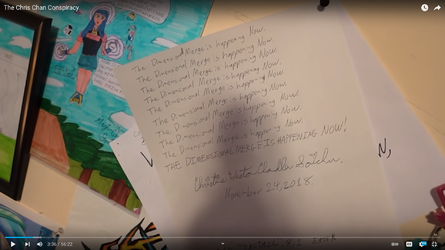 The Chris Chan Conspiracy
The Dimensional Merge is happening Now.
The Dimensional Merge is happening Now.
The Dimensional Merge is happening Now.
The Dimensional Merge is happening Now.
The Dimensional Merge is happening Now.
The Dimensional Merge is happening Now.
The Dimensional Merge is happening Now.
The Dimensional Merge is happening Now.
The Dimensional Merge is happening Now.
THE DIMENSIONAL MERGE IS HAPPENING NOW!
November 24, 2018.
3:36 / 56:22